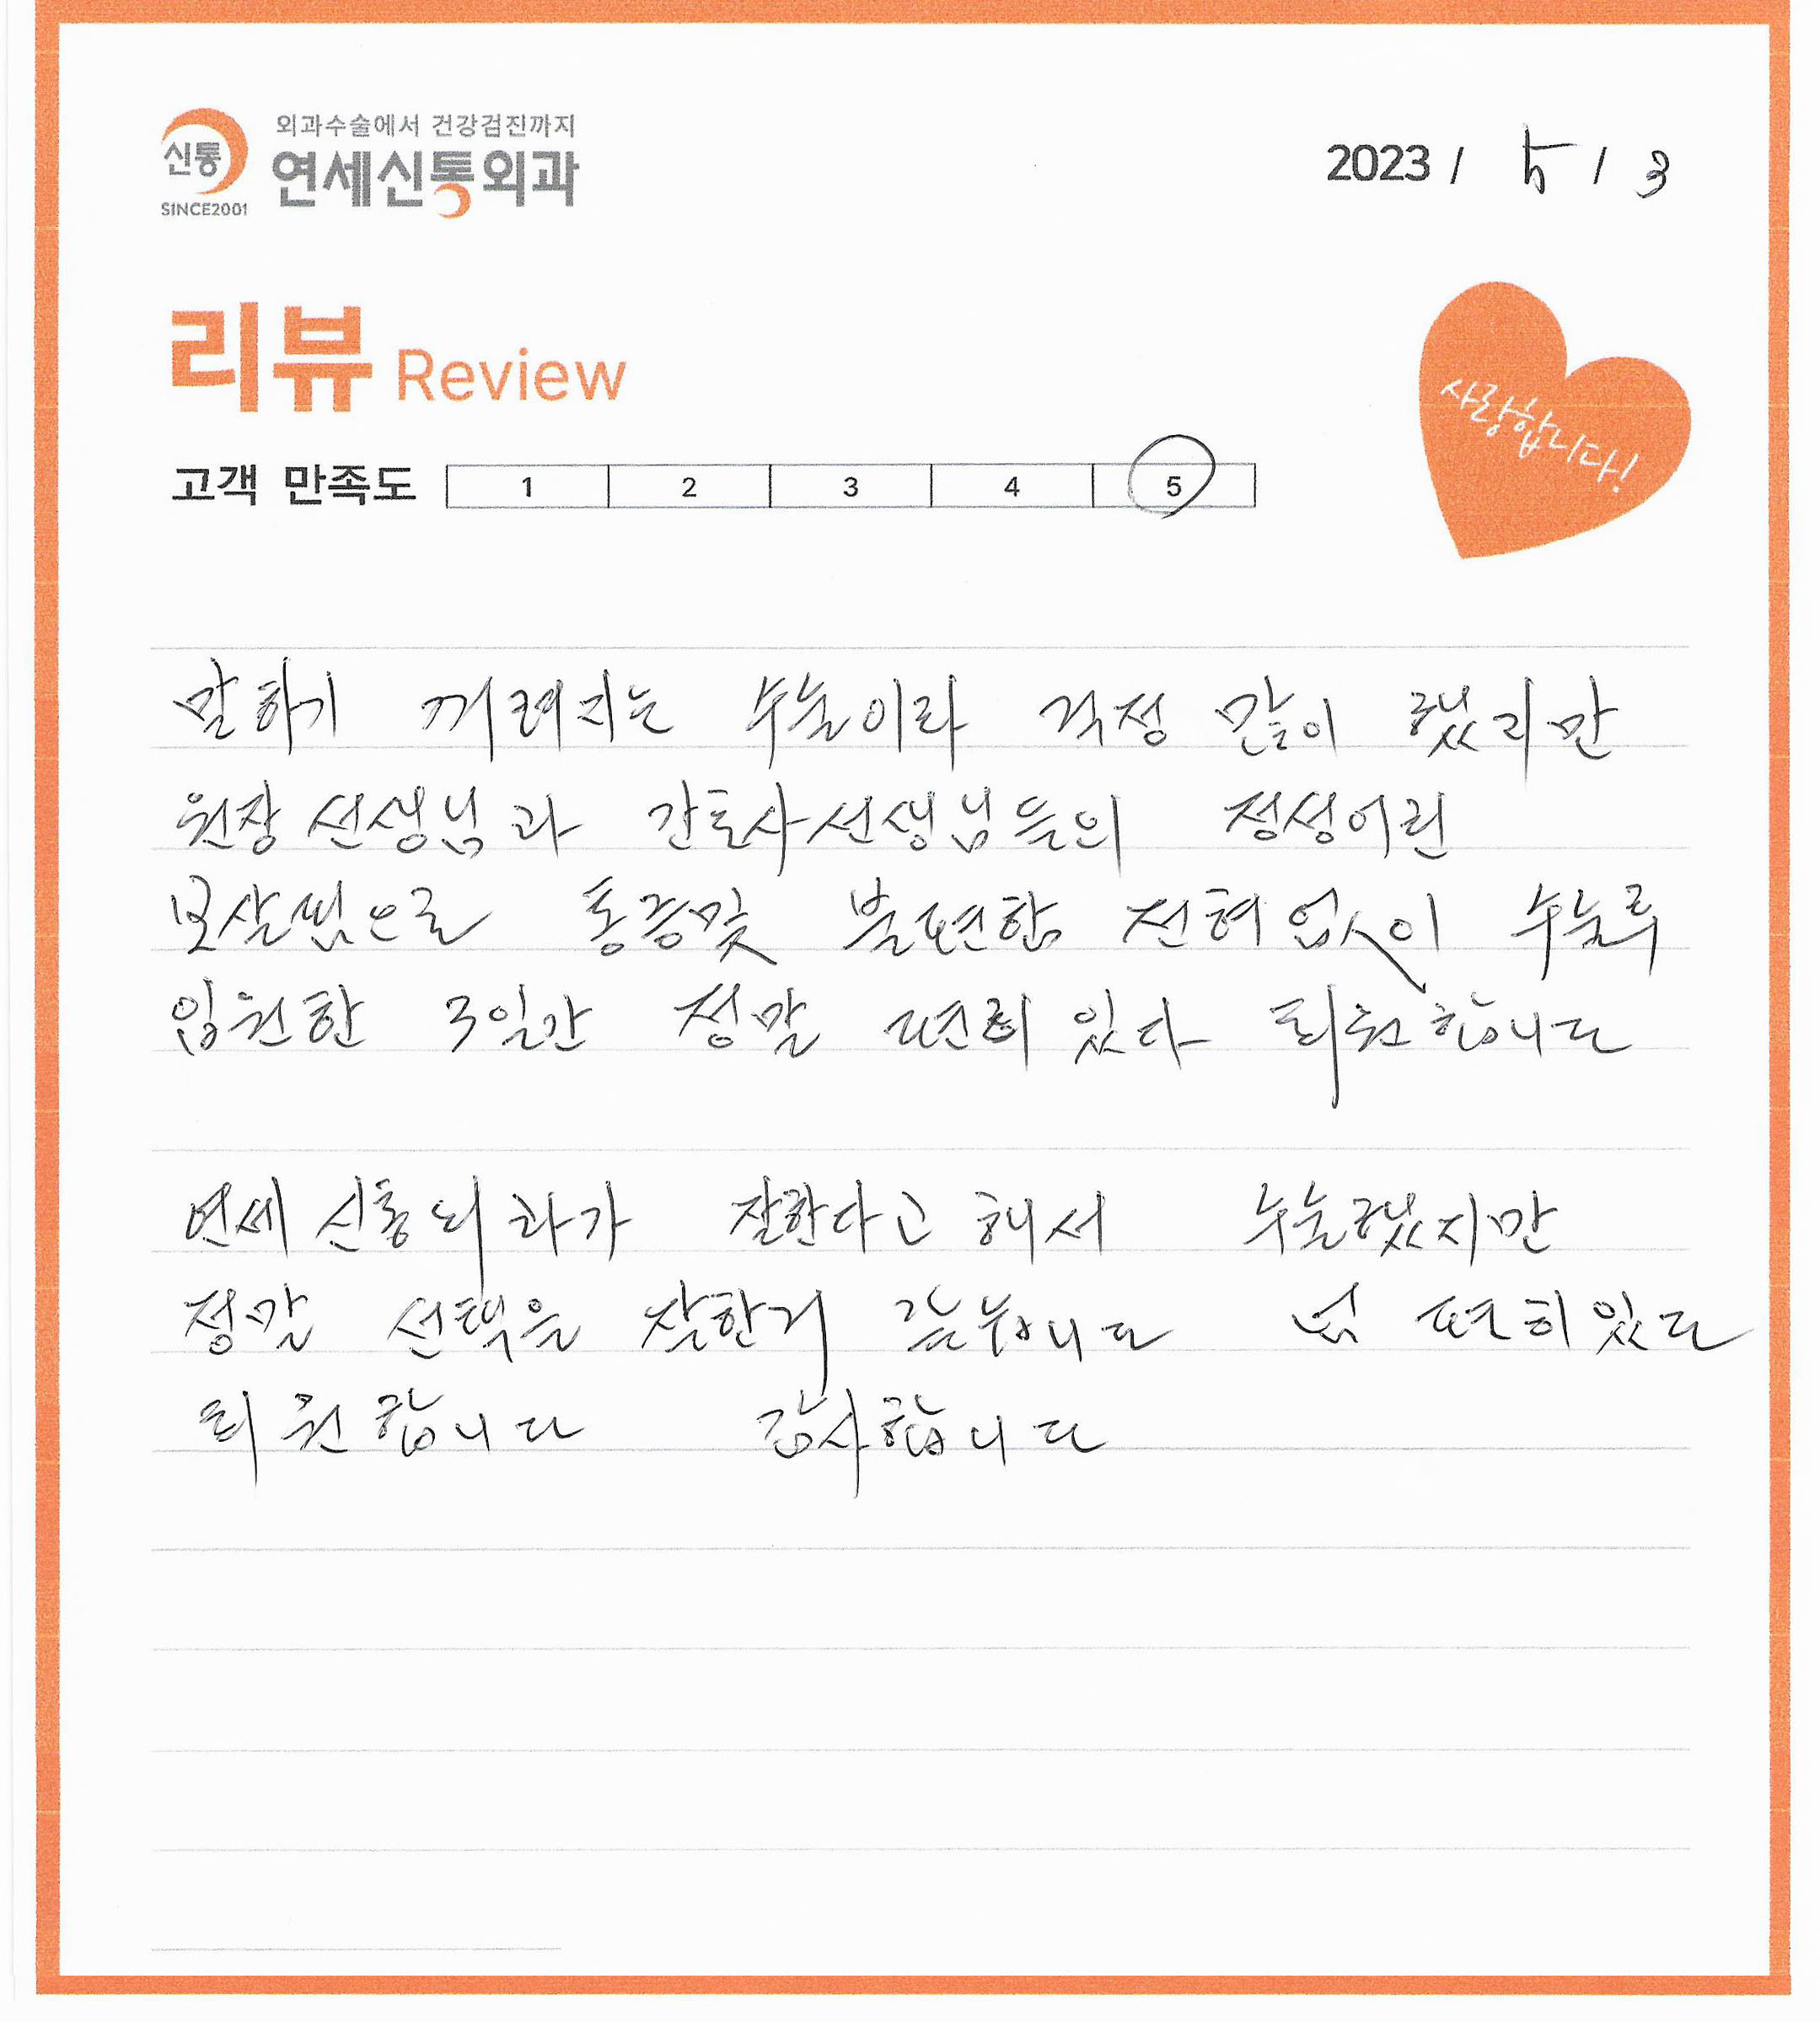 외과수술에서 건강검진까지
신통
연세신통외과
SINCE2001
2023 / 5 / 3
리뷰 Review
사랑합니다!
고객 만족도 1 2 3 4 5
말하기 꺼려지는 수술이라 걱정 많이 했지만
원장 선생님과 간호사선생님들의 정성어린
보살핌으로 통증및 불편함 전혀 없이 수술후
입원한 3일간 정말 편히 있다 퇴원합니다
연세신통외과가 잘한다고 해서 수술했지만
정말 선택을 잘한거 같습니다 넘 편히있다
퇴원합니다 감사합니다